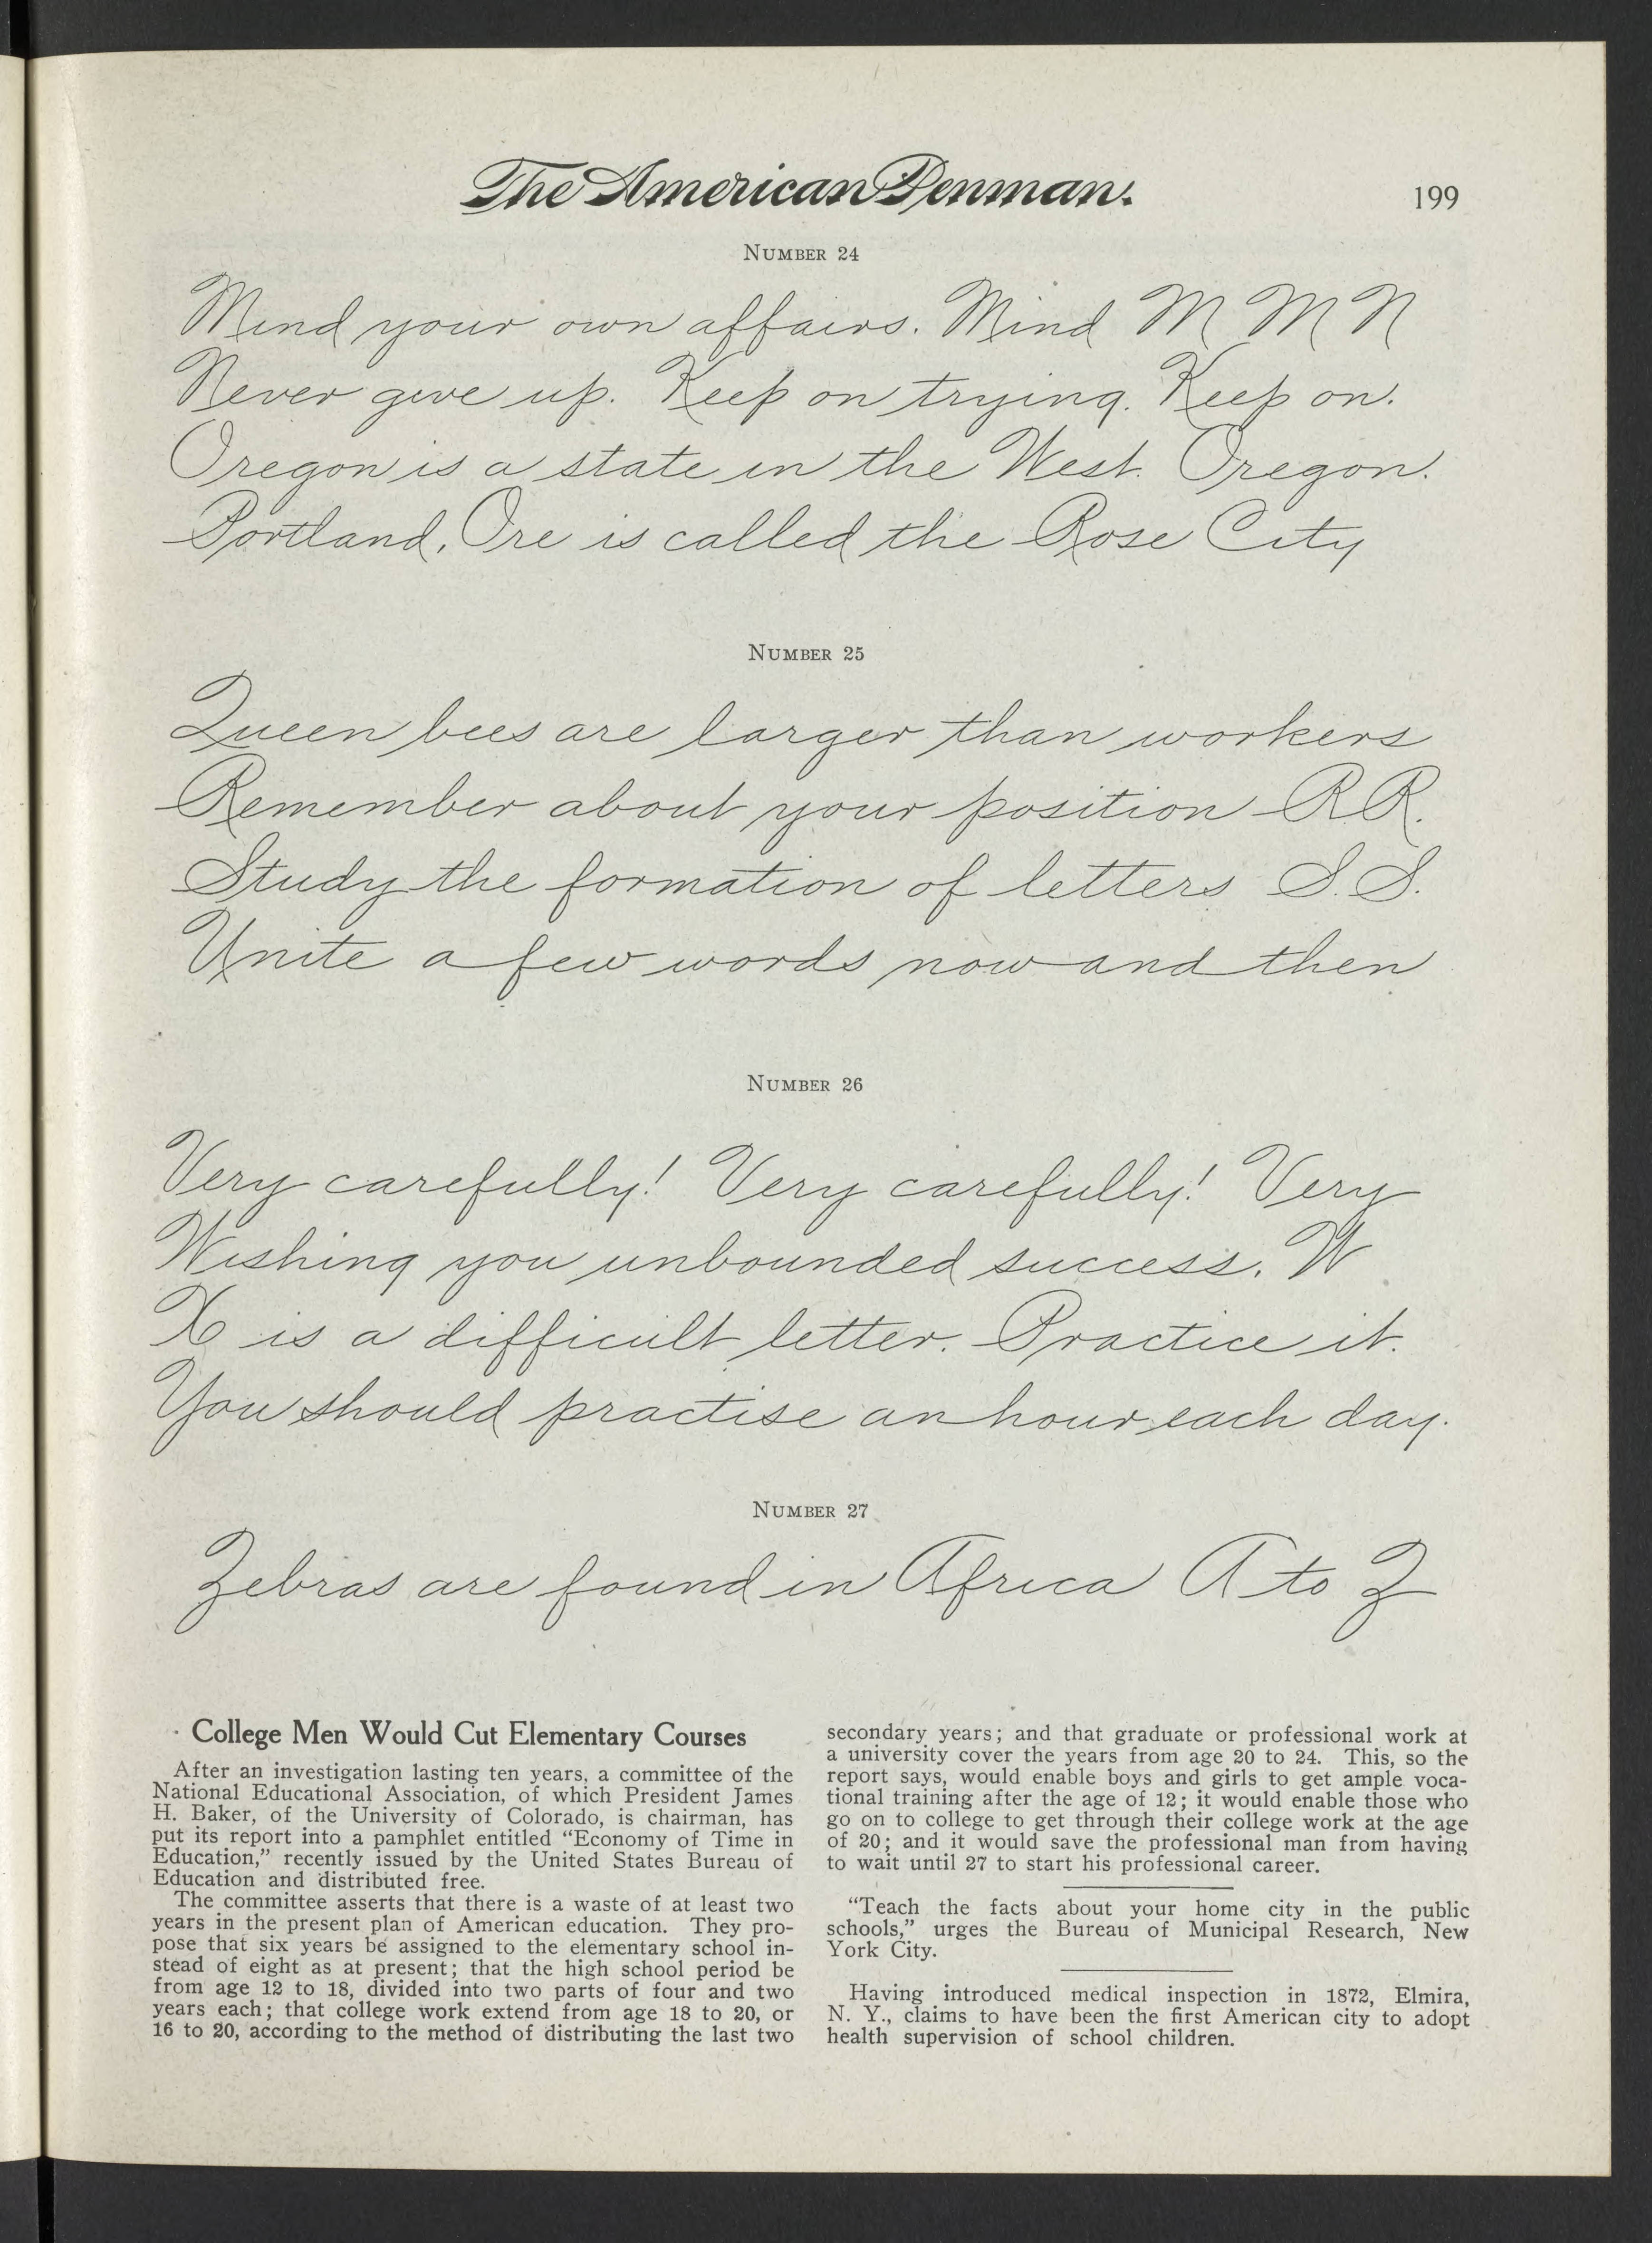 The American Penman.
199
NUMBER 24
Mind your own affairs. Mind M M N
Never give up. Keep on trying. Keep on.
Oregon is a state in the West. Oregon.
Portland, Ore is called the Rose City
NUMBER 25
Queen bees are larger than workers
Remember about your position R.R.
Study the formation of letters S.S.
Unite a few words now and then
NUMBER 26
Very carefully! Very carefully! Very
Wishing you unbounded success. W
X is a difficult letter. Practice it.
You should practise an hour each day.
NUMBER 27
Zebras are found in Africa A to Z
College Men Would Cut Elementary Courses
After an investigation lasting ten years, a committee of the
National Educational Association, of which President James
H. Baker, of the University of Colorado, is chairman, has
put its report into a pamphlet entitled “Economy of Time in
Education,” recently issued by the United States Bureau of
Education and distributed free.
The committee asserts that there is a waste of at least two
years in the present plan of American education. They pro-
pose that six years be assigned to the elementary school in-
stead of eight as at present; that the high school period be
from age 12 to 18, divided into two parts of four and two
years each; that college work extend from age 18 to 20, or
16 to 20, according to the method of distributing the last two
secondary years; and that graduate or professional work at
a university cover the years from age 20 to 24. This, so the
report says, would enable boys and girls to get ample voca-
tional training after the age of 12; it would enable those who
go on to college to get through their college work at the age
of 20; and it would save the professional man from having
to wait until 27 to start his professional career.
“Teach the facts about your home city in the public
schools,” urges the Bureau of Municipal Research, New
York City.
Having introduced medical inspection in 1872, Elmira,
N. Y., claims to have been the first American city to adopt
health supervision of school children.